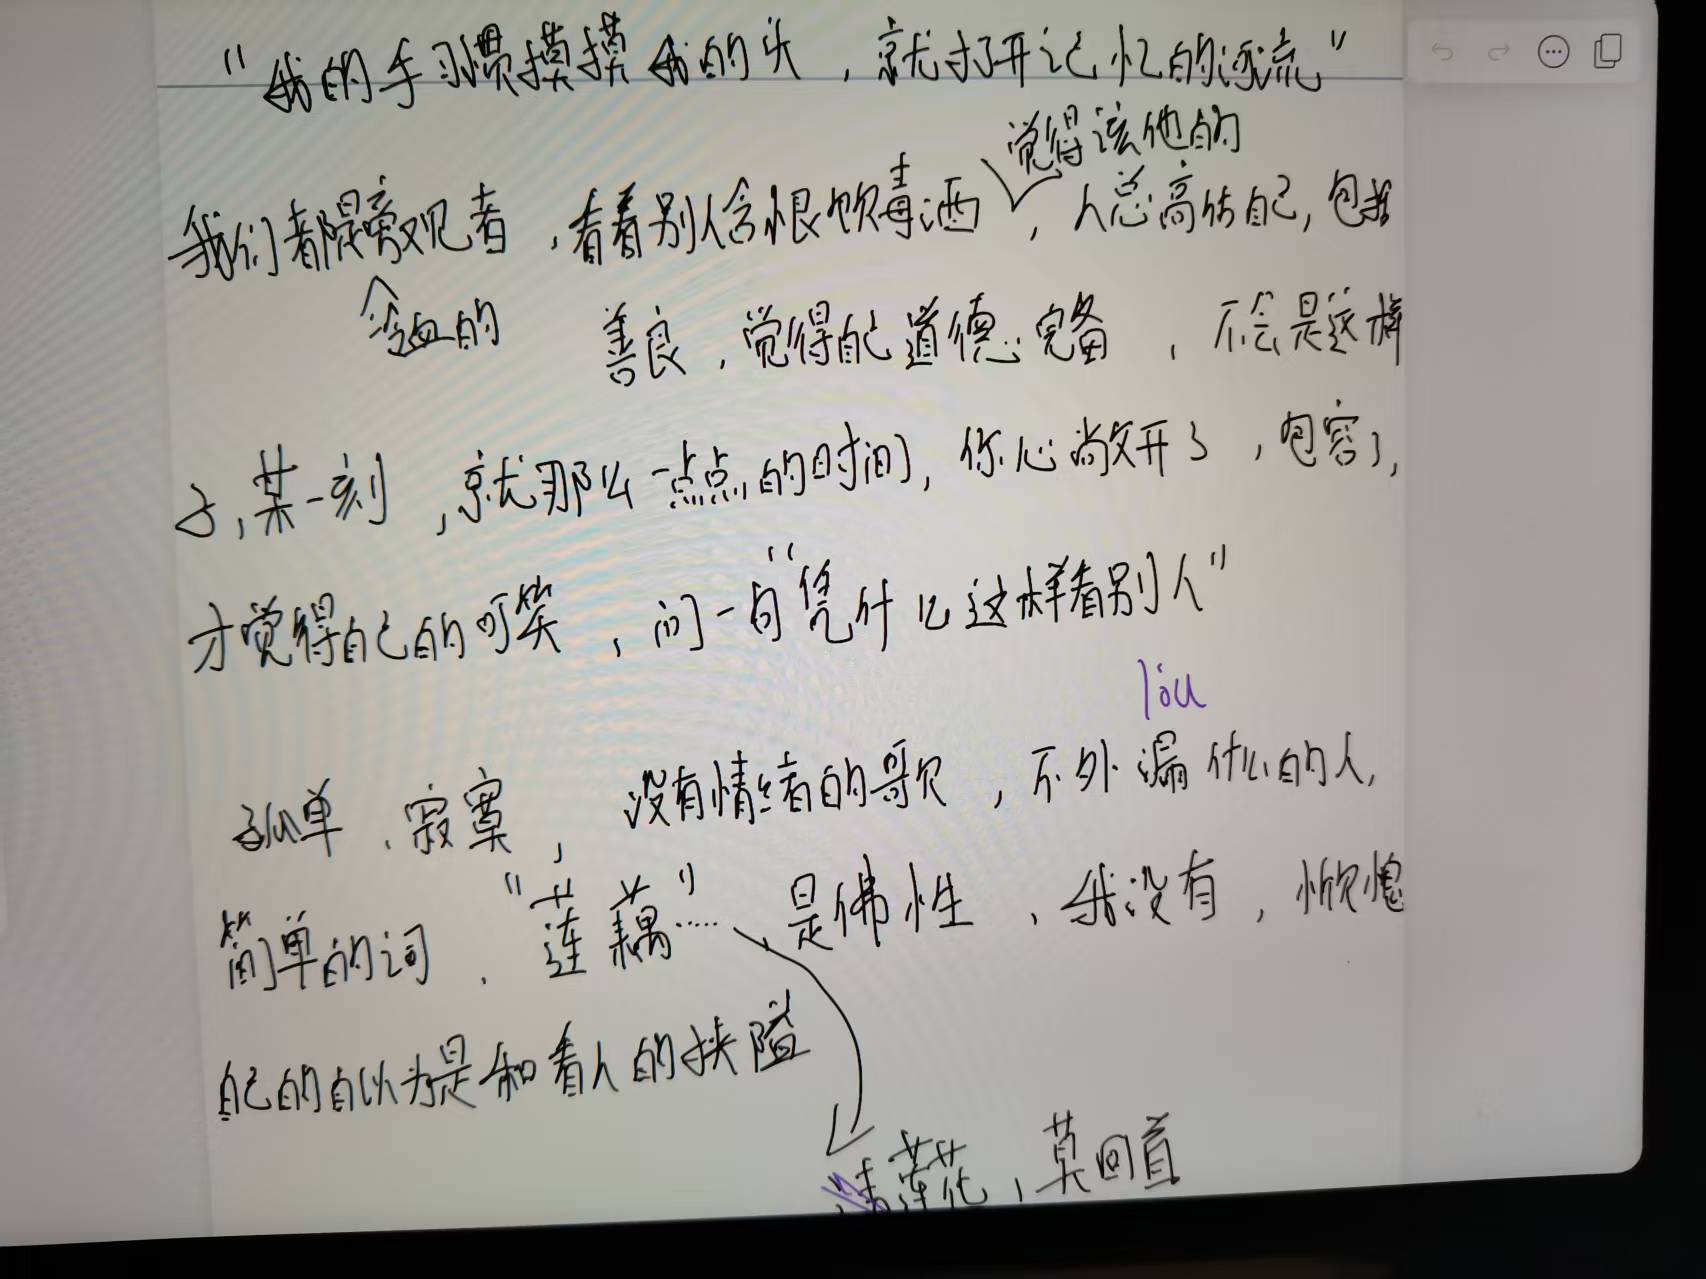 “我的手习惯摸摸我的头，就打开记忆的逐流”
觉得该他的
我们都是旁观者，看着别人含恨饮毒酒，人总高估自己，包括
冷血的
善良，觉得自己道德心完备，不会是这样
子，某一刻，就那么一点点的时间，你心敞开了，包容了，
才觉得自己的可笑，问一句“凭什么这样看别人”
lòu
孤单、寂寞，没有情绪的歌，不外漏什么的人，
简单的词、“莲藕”……、是佛性、我没有，惭愧
自己的自以为是和看人的狭隘
莲花，莫回首